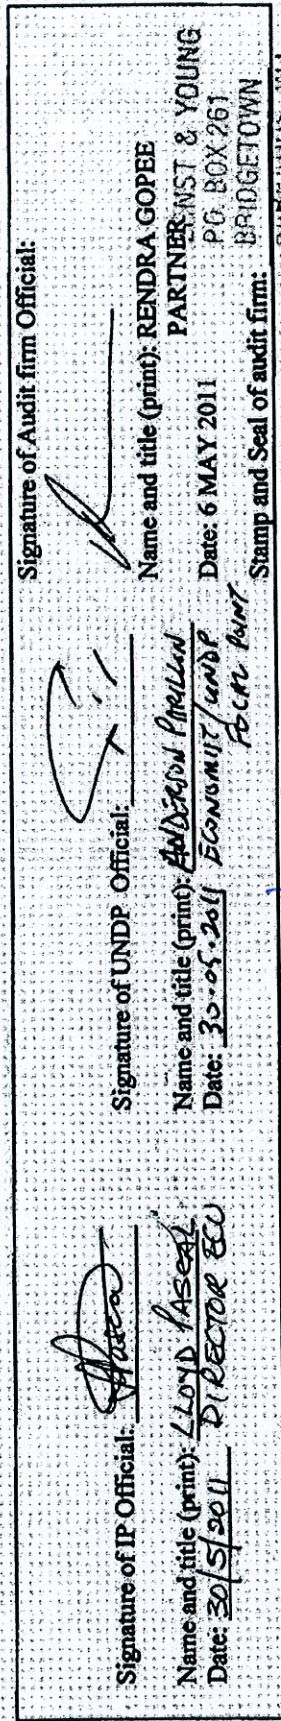 Signature of IP Official:
Name and title (print): LLOYD PASCAL
DIRECTOR ECU
Date: 30/5/2011
Signature of UNDP Official:
Name and title (print): ANDERSON PARILLON
Date: 30.05.2011 ECONOMIST/UNDP
FOCAL POINT
Signature of Audit firm Official:
Name and title (print): RENDRA GOPEE
PARTNER
Date: 6 MAY 2011
Stamp and Seal of audit firm:
ERNST & YOUNG
P.O. BOX 261
BRIDGETOWN